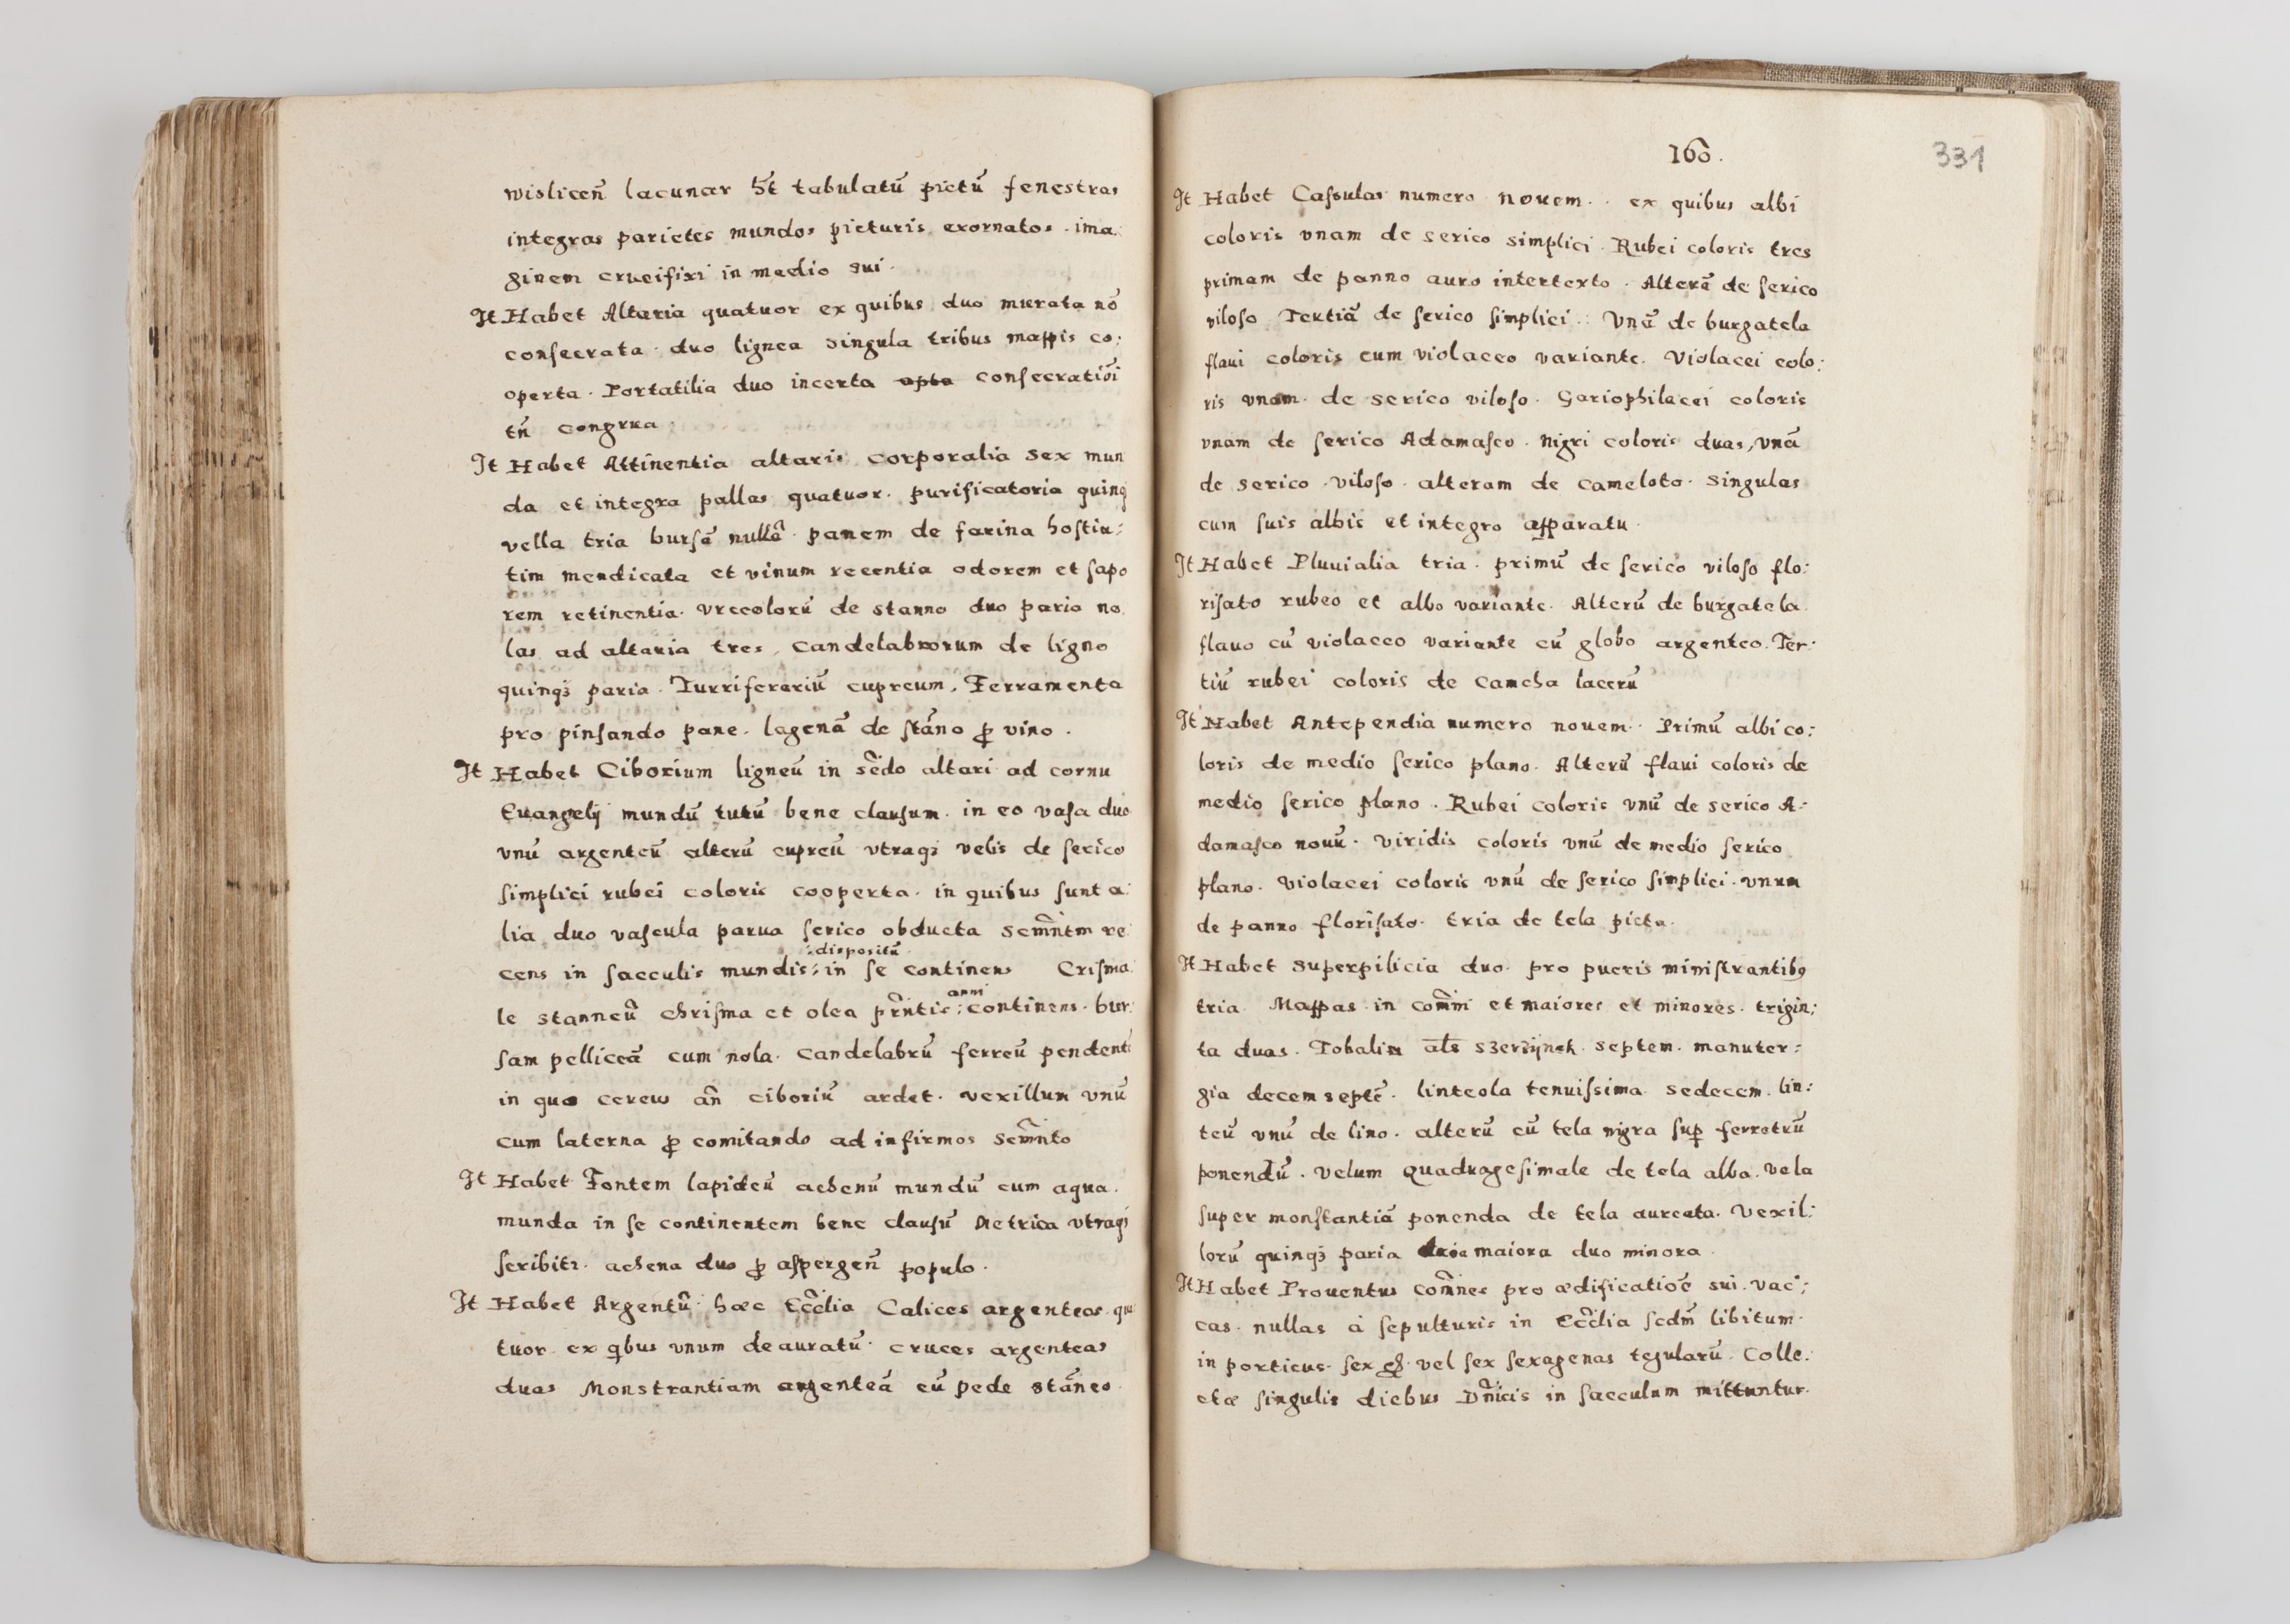 wislicen̄ lacunar h̄t tabulatū pictū fenestras
integras parietes mundos picturis exornatos. ima:
ginem crucifixi in medio sui.
It Habet Altaria quatuor ex quibus duo murata nō
consecrata. duo lignea singula tribus mappis co:
operta. Portatilia duo incerta consecratiōi
tn̄ congrua.
It Habet Attinentia altaris corporalia sex mun
da et integra pallas quatuor. purificatoria quinq
vella tria bursā nullā. panem de farina hostia:
tim mendicata et vinum recentia odorem et sapo
rem retinentia. vrceolorū de stanno duo paria no
las ad altaria tres, candelabrorum de ligno
quinqꝫ paria. Turriferariū cupreum, Ferramenta
pro pinsando pane. lagenā de stāno ꝓ vino.
It Habet Ciborium ligneū in sc̄do altari ad cornu
Euangelij mundū tutū bene clausum. in eo vasa duo
vnū argenteū alterū cupreū vtraqꝫ velis de serico
simplici rubei coloris cooperta. in quibus sunt a:
lia duo vascula parua serico obducta sem̄ntm re
:dispositū
cens in sacculis mundis: in se continens Crisma:
anni
le stanneū chrisma et olea pr̄ntis: continens. bur:
sam pelliceā cum nola. candelabrū ferreū pendent
in quo cereus an̄ ciboriū ardet. vexillum vnū
cum laterna ꝓ comitando ad infirmos sem̄nto
It Habet Fontem lapideū achenū mundū cum aqua.
munda in se continentem bene clausū Metrica vtraqꝫ
scribitr. achena duo ꝓ aspergen̄ populo.
It Habet Argentū: hæc Ecc̄lia Calices argenteos. qua
tuor. ex qbus vnum deauratū. cruces argenteas
duas Monstrantiam argenteā cū pede stāneo.
160.
331
It Habet Cassulas numero nouem. ex quibus albi
coloris vnam de serico simplici. Rubei coloris tres
primam de panno auro intertexto. Alterā de serico
viloso Tertiā de serico simplici. Vnā de burgatela
flaui coloris cum violaceo variante. Violacei colo:
ris vnam. de serico viloso. Gariophilacei coloris
vnam de serico Adamasco. nigri coloris duas, vnā
de serico viloso. alteram de cameloto. singulas
cum suis albis et integro apparatu.
It Habet Pluuialia tria. primū de serico viloso flo:
risato rubeo et albo variante. Alterū de burgatela
flauo cū violaceo variante cū globo argenteo. Ter:
tiū rubei coloris de camcha lacerū
It Habet Antependia numero nouem. Primū albi co:
loris de medio serico plano. Alterū flaui coloris de
medio serico plano. Rubei coloris vnū de serico A:
damasco nouū. viridis coloris vnū de medio serico
plano. violacei coloris vnū de serico simplici. vnum
de panno florisato. tria de tela picta.
It Habet superpilicia duo. pro pueris ministrantibꝰ
tria. Mappas in com̄ni et maiores et minores. trigin:
ta duas. Tobalia al̄s septem. manuter:
gia decem septē. linteola tenuissima sedecem. lin:
teū vnū de lino. alterū cū tela nigra suꝑ ferretrū
ponendū. velum quadragesimale de tela alba. vela
super monstantiā ponenda de tela aureata. Vexil:
lorū quinqꝫ paria tria maiora duo minora.
It Habet Prouentus com̄nes pro ædificatiōe sui. vac:
cas. nullas à sepulturis in Ecc̄lia scdm̄ libitum.
in porticus. sex vel sex sexagenas tegularū. Colle:
ctæ singulis diebus Dn̄icis in sacculum mittuntur.